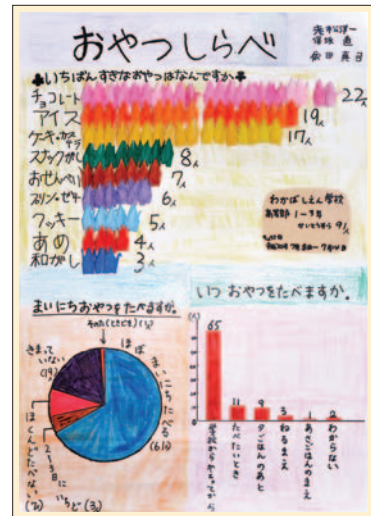 おやつしらべ
♣いちばんすきなおやつはなんですか♣
チョコレート 22人
アイス 19人
ケーキ・カステラ 17人
スナックがし 8人
おせんべい 7人
プリン・ゼリー 6人
クッキー 5人
あめ 4人
和がし 3人
わかばしえん学校
1~3年
91人
まいにちおやつをたべますか。
ほぼまいにちたべる
(61)
きまっていない
(19)
2~3日にいちど(3)
ほとんどたべない
いつ おやつをたべますか。
(人)
65
11
9
3
1
2
学校からかえってから
たべたいとき
夕ごはんのあと
ねるまえ
あさごはんのまえ
わからない